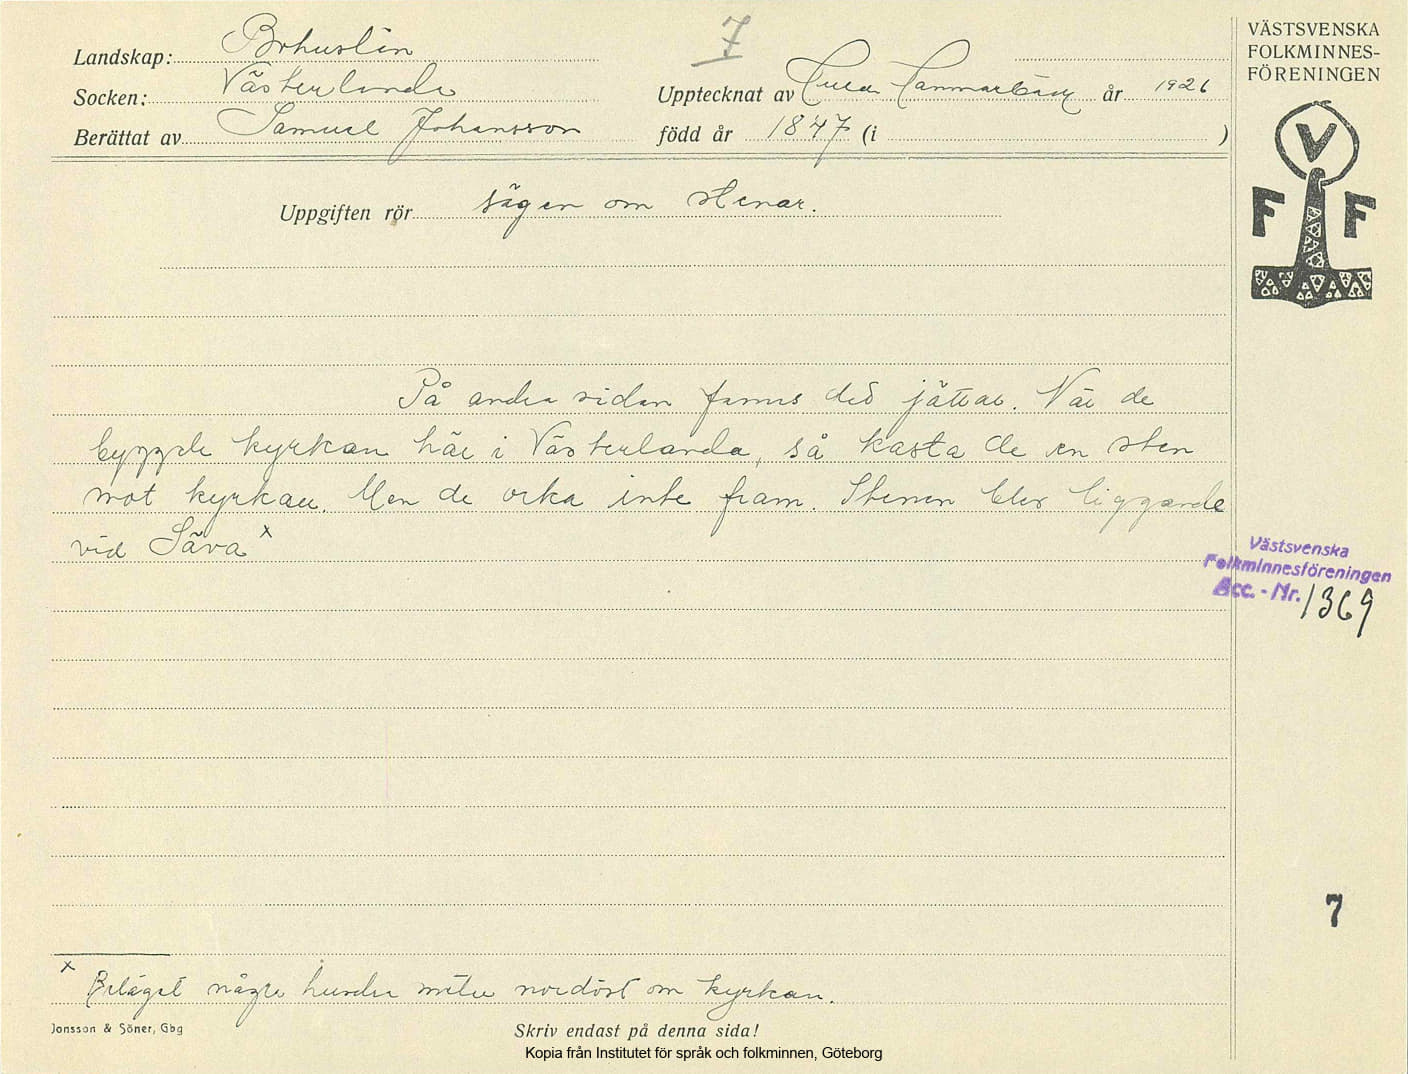 Landskap: Bohuslän
7
Socken: Västerlanda
Upptecknat av Tura Hammarbäck år 1926
Berättat av Samuel Johansson
född år 1847 (i )
VÄSTSVENSKA
FOLKMINNES-
FÖRENINGEN
V
F F
Uppgiften rör sägen om stenar.
På andra sidan fanns det jättar. När de
byggde kyrkan här i Västerlanda, så kasta de en sten
mot kyrkan. Men de orka inte fram. Stenen blev liggande
vid Säva x
Västsvenska
Folkminnesföreningen
Acc. - Nr. 1369
7
x
Beläget några hundra meter nordöst om kyrkan.
Jonsson & Söner, Gbg
Skriv endast på denna sida!
Kopia från Institutet för språk och folkminnen, Göteborg